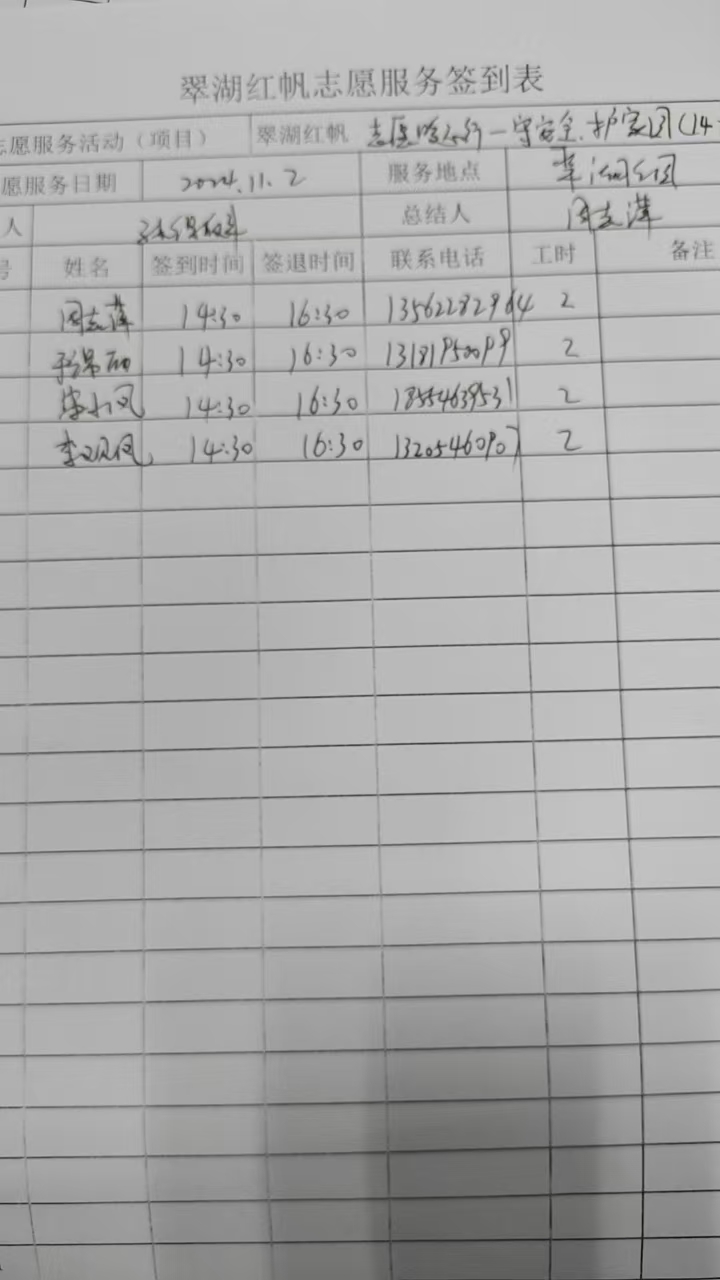 翠湖红帆志愿服务签到表
志愿服务活动（项目） 翠湖红帆 志愿 行一守安全.护家园(14
愿服务日期 2024.11.2 服务地点
人 总结人 周志萍
号 姓名 签到时间 签退时间 联系电话 工时 备注
周志萍 14:30 16:30 13562282964 2
14:30 16:30 13181950099 2
14:30 16:30 18554639531 2
李 凤 14:30 16:30 13205460907 2